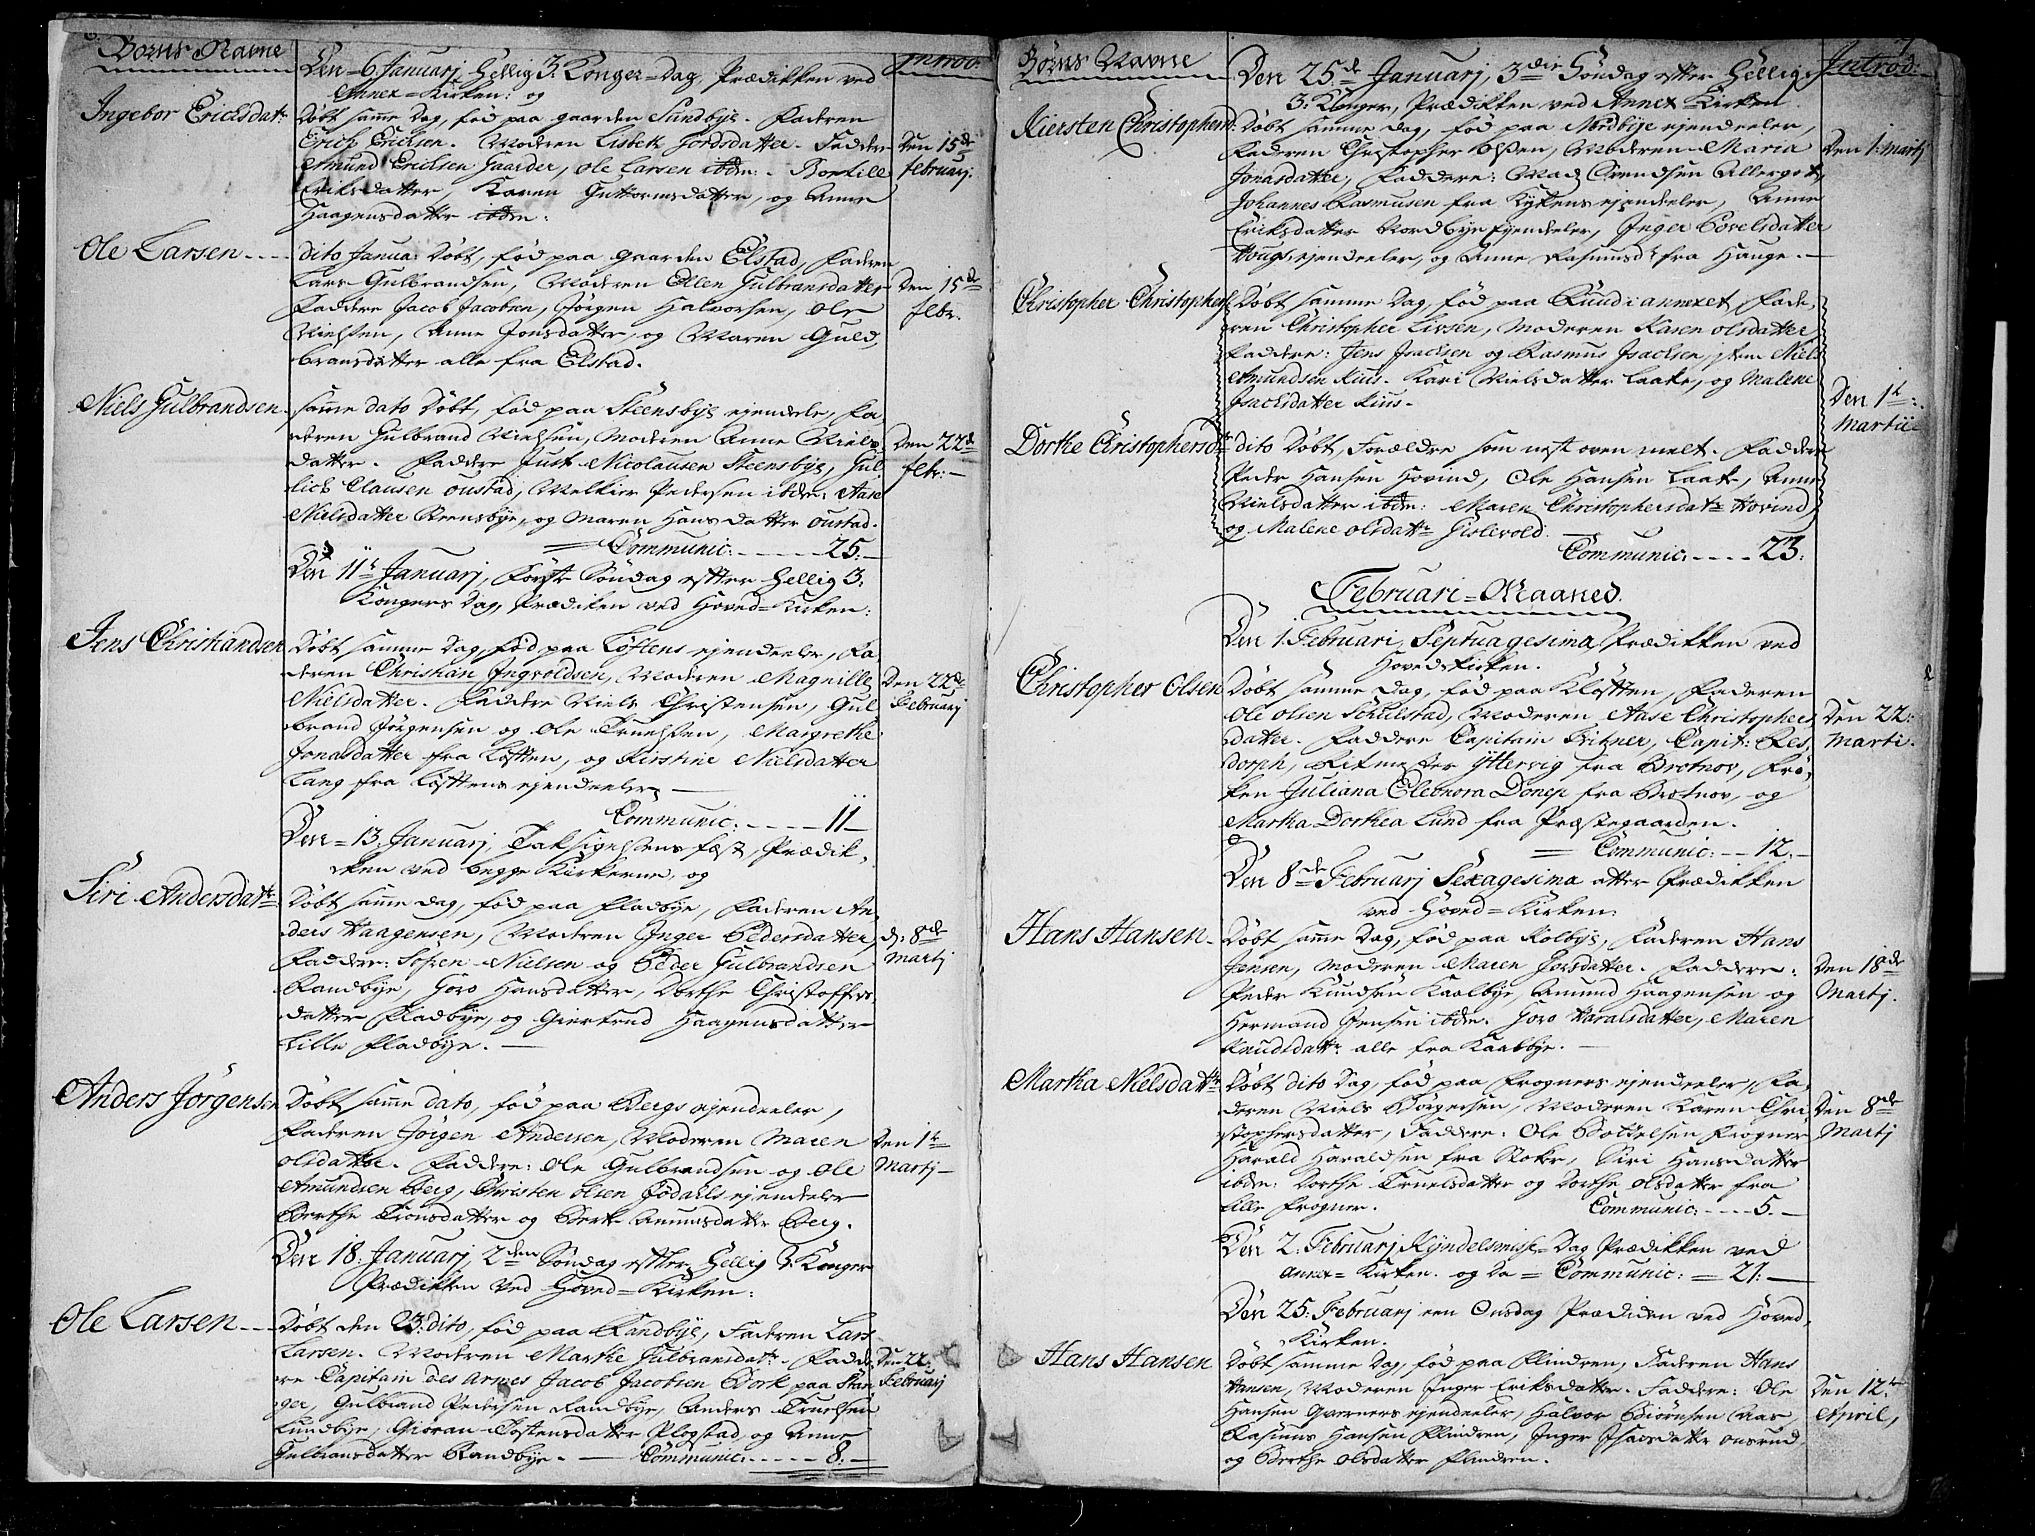 6.
Børns Navne
Introd:
Den 6 Januarj, Hellig 3. Konger=Dag, Prædikken ved
Annex=Kirken: og
Ingebor Erichsdatr
Døbt samme Dag, fød paa gaarden Sundbÿe. Faderen
Erich Erichsen. Moderen Lisbeth Jordsdatter. Faddere
Amund Erichsen Gaarder, Ole Larsen ibdn: Boehill
Eriksdatter, Karen Guttormsdatter, og Anne
Haagensdatter ibdn:
Den 15de
februarj.
Ole Larsen
Dito Janua: Døbt, fød paa gaarden Elstad, Faderen
Lars Gulbrandsen, Moderen Ellen Gulbransdatter
Faddere Jacob Jacobsen, Jørgen Halvorsen, Ole
Nielsen, Anne Jonsdatter, og Maren Guld,
bransdatter alle fra Elstad.
Den 15de
febr.
Niels Gulbrandsen.
samme dato Døbt, fød paa Steensbÿe ejendele, Fa
deren Gulbrand Nielsen, Moderen Anne Niels
datter. Faddere Just Nicolausen Steensbÿe, Gul
lich Clausen oustad, Melkior Pedersen ibdn: Aase
Nielsdatter Steensbÿe, og Maren Hans datter oustad.
Communic: 25:
Den 22de
febr:
Den 11te Januarj, Første Søndag efter Hellig 3:
Kongers Dag, Prædiken ved Hoved=Kirken:
Jens Christiandsen
Døbt samme Dag, fød paa Løftens ejendeeler, Fa
deren Christian Ingvoldsen, Moderen Magnille
Nielsdatter. Faddere Niels Christensen, Gul
brand Jørgensen og Ole Truelsen, Margrethe
Jonasdatter fra Løften, og Kirstine Nielsdatter
Lang fra Løftens ejendeeler
Communic: 11
Den 22de
Februarj
Den 13. Januarj, Taksigelsens fæst, Prædik,
ken ved begge Kirkerne, og
Siri Andersdatr
Døbt samme dag, fød paa Fladbÿe, Faderen An,
ders Haagensen, Moderen Inger Pedersdatter,
Faddere: Søfren Nielsen og Peder Gulbrandsen
Randbÿe, Goro Hansdatter, Dorthe Christoffers
datter Fladbÿe, og Giertrud Haagensdatter
Lille Fladbÿe.
d: 8de
Martj
Anders Jørgensen
Døbt samme dato, fød paa Bergs ejendeeler,
Faderen Jørgen Andersen, Moderen Maren
olsdatter. Faddere: Ole Gulbrandsen og Ole
Amundsen Berg, Christen olsen Jødahls ejendeler
Berthe Tronsdatter og Berte Amunsdatter Berg.
Den 1te
Martj
Den 18. Januarj, 2den Søndag efter Hellig 3: Konger
Prædikken ved Hoved=Kirken:
Ole Larsen
Døbt den 23: dito, fød paa Randbÿe, Faderen Lars
Larsen. Moderen Marthe Gulbransdatr. Fadde,
re Capitain des Armes Jacob Jacobsen Bork paa Stan
ger, Gulbrand Pedersen Randbÿe, Anders Truelsen
Lundbÿe, Gioran Tostensdatter Plogstad, og Anne
Gulbransdatter Randbÿe. Communic: 8:
Den 22:
Februarj
7
Børns Navne
Introd:
Den 25de Januarj, 3die Søndag efter Hellige
3: Konger, Prædikken ved Annex Kirken
Kiersten Christophersd:
Døbt samme dag, fød paa Nordbÿe ejendeeler,
Faderen Christopher Olsen, Moderen Maria
Jonasdatter, Faddere: Mad: Svendsen Allergot,
Johannes Rasmusen fra Kykens ejendeeler, Anne
Eriksdatter Nordbÿe ejendeeler, Inger Povelsdatter
Hougs ejendeeler, og Anne Rasmusdr fra Hauge.
Den 1: Martj
Christopher Christophers
Døbt samme Dag, fød paa Ruud i annexet, Fade,
ren Christopher Livsen, Moderen Karen olsdatter
Faddere: Jens Isachsen og Rasmus Isachsen, item Niels
Amundsen Kius. Kari Nielsdatter Laake, og Malene
Isachsdatter Kius.
Den 1te:
Martii
Dorthe Christophersdr
dito Døbt, Forældre som nest oven melt. Faddere
Peder Hansen Hovind, Ole Hansen Laak, Anne
Nielsdatter ibdn: Maren Christophersdatr Hovind,
og Malene olsdatr Gislevold.
Communic: 23:
Februari=Maaned.
Den 1. Februari, Septuagesima, Prædikken ved
Hovedkirken.
Christopher Olsen
Døbt samme Dag, fød paa Kløften, Faderen
Ole olsen Schulstad, Moderen Aase Christophers
datter. Faddere Capitain Bitzner, Capit: Res,
dorph, Ritmester Ÿttervig fra Brotnov, Frø,
ken Juliana Eleonora Dønep fra Brotnov, og
Martha Dorthea Lund fra Præstegaarden.
Communic: 12.
Den 22:
Martii.
Den 8de Februarj Sexagesima atter Prædikken
ved Hoved=Kirken:
Hans Hansen
Døbt samme Dag, fød paa Kolbÿe, Faderen Hans
Jensen, Moderen Maren Jorsdatter. Faddere:
Peder Knudsen Kaalbÿe, Amund Haagensen og
Hermand Jensen ibdn. Goro Haralsdatter, Maren
Knudsdatr: alle fra Kaalbÿe.
Den 18de
Martj.
Martha Nielsdatr
Døbt dito Dag, fød paa Frogners ejendeeler, Fa,
deren Niels Børgersen, Moderen Karen Chri
stophersdatter, Faddere: Ole Bottelsen Frogner
Harald Haraldsen fra Stokr, Siri Hansdatter
ibdn: Dorthe Truelsdatter og Dorthe olsdatter fra
lille Frogner. Communic: 5.
Den 8de
Martj
Den 2: Februarj Kÿndelmisse=Dag Prædikken ved
Annex=Kirken. og Da=Communic: = 21:
Den 25. Februarj een Onsdag Prædiken ved Hoved,
Kirken.
Hans Hansen
Døbt samme Dag, fød paa Flindren, Faderen Hans
Hansen, Moderen Inger Eriksdatter. Faddere: Ole
Hansen Qverners ejendeeler, Halvor Biørnsen Aas,
Rasmus Hansen Flindren, Inger Isacsdatter onsrud,
og Berthe olsdatter Flindren.
Den 12te
April,